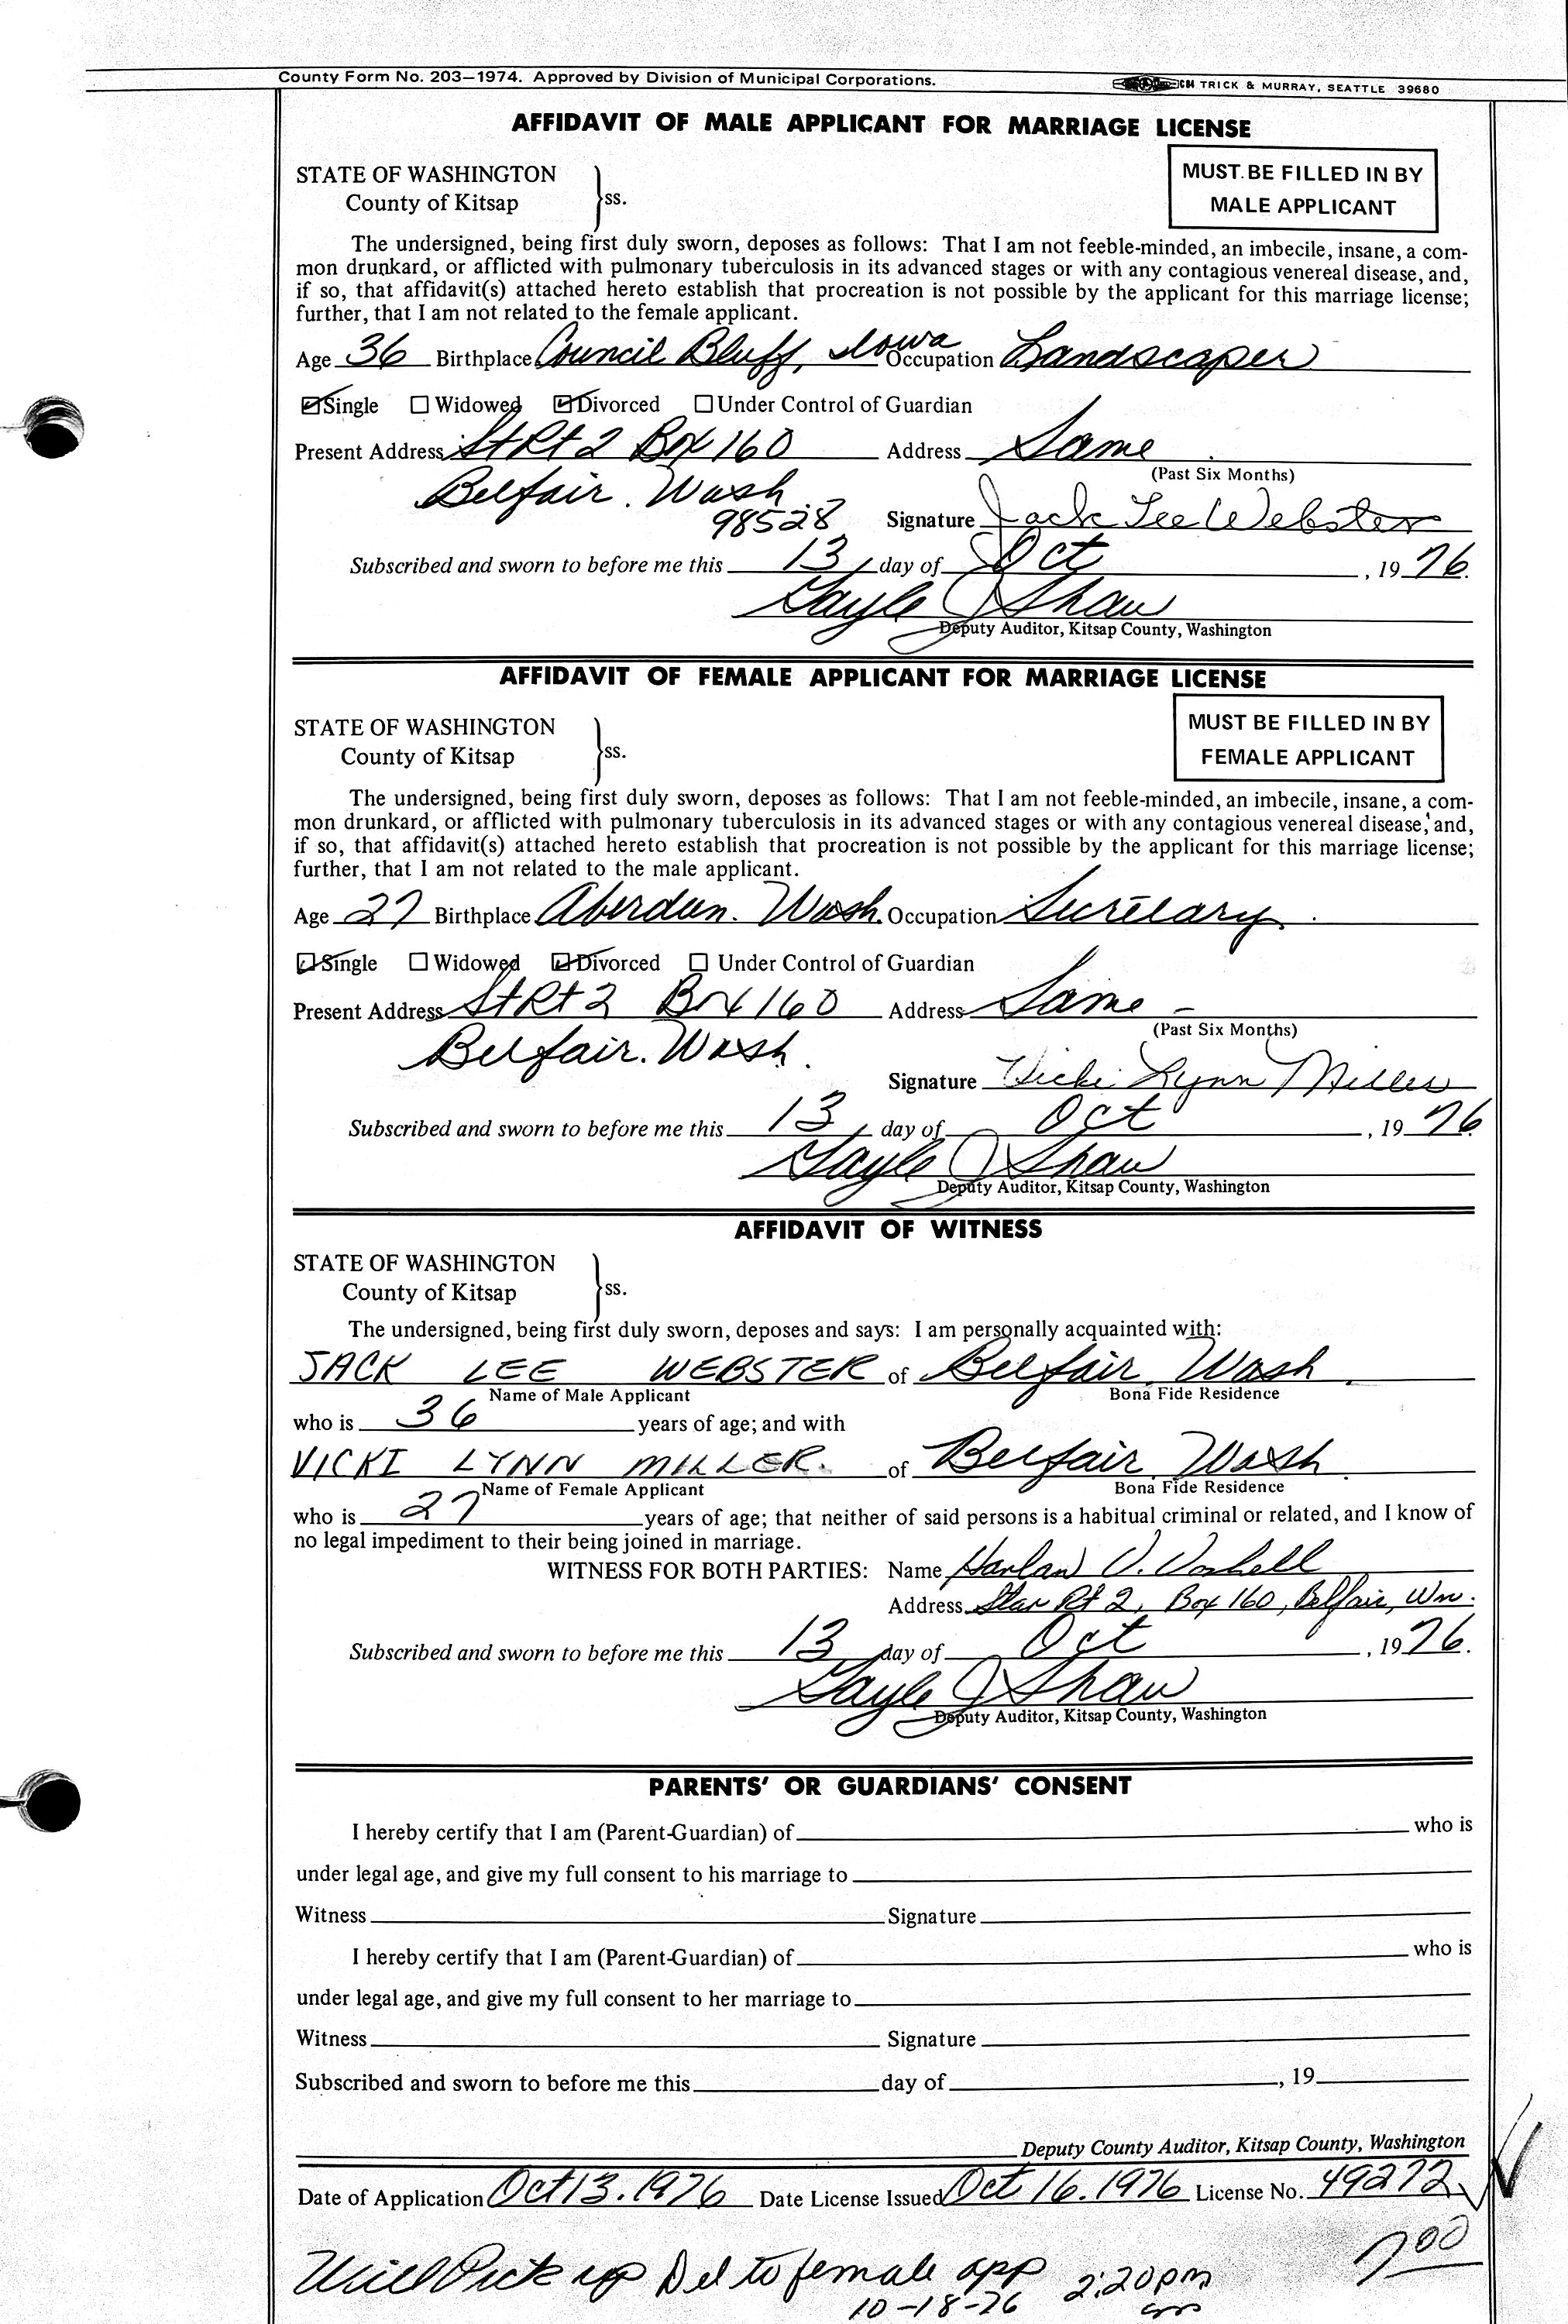 County Form No. 203—1974. Approved by Division of Municipal Corporations. TRICK & MURRAY, SEATTLE 39680
AFFIDAVIT OF MALE APPLICANT FOR MARRIAGE LICENSE
STATE OF WASHINGTON
County of Kitsap
ss.
MUST BE FILLED IN BY
MALE APPLICANT
The undersigned, being first duly sworn, deposes as follows: That I am not feeble-minded, an imbecile, insane, a com-
mon drunkard, or afflicted with pulmonary tuberculosis in its advanced stages or with any contagious venereal disease, and,
if so, that affidavit(s) attached hereto establish that procreation is not possible by the applicant for this marriage license;
further, that I am not related to the female applicant.
Age 36 Birthplace Council Bluff, Iowa Occupation Landscaper
Single Widowed Divorced Under Control of Guardian
Present Address St Rt 2 Box 160 Address Same
(Past Six Months)
Belfair. Wash.
98528 Signature Jack Lee Webster
Subscribed and sworn to before me this 13 day of Oct, 1976.
Gayle J Shaw
Deputy Auditor, Kitsap County, Washington
AFFIDAVIT OF FEMALE APPLICANT FOR MARRIAGE LICENSE
STATE OF WASHINGTON
County of Kitsap
ss.
MUST BE FILLED IN BY
FEMALE APPLICANT
The undersigned, being first duly sworn, deposes as follows: That I am not feeble-minded, an imbecile, insane, a com-
mon drunkard, or afflicted with pulmonary tuberculosis in its advanced stages or with any contagious venereal disease, and,
if so, that affidavit(s) attached hereto establish that procreation is not possible by the applicant for this marriage license;
further, that I am not related to the male applicant.
Age 27 Birthplace Aberdeen. Wash. Occupation Secretary
Single Widowed Divorced Under Control of Guardian
Present Address St Rt 2 Box 160 Address Same —
(Past Six Months)
Belfair. Wash.
Signature Vicki Lynn Miller
Subscribed and sworn to before me this 13 day of Oct, 1976.
Gayle J Shaw
Deputy Auditor, Kitsap County, Washington
AFFIDAVIT OF WITNESS
STATE OF WASHINGTON
County of Kitsap
ss.
The undersigned, being first duly sworn, deposes and says: I am personally acquainted with:
JACK LEE WEBSTER of Belfair, Wash.
Name of Male Applicant Bona Fide Residence
who is 36 years of age; and with
VICKI LYNN MILLER. of Belfair, Wash.
Name of Female Applicant Bona Fide Residence
who is 27 years of age; that neither of said persons is a habitual criminal or related, and I know of
no legal impediment to their being joined in marriage.
WITNESS FOR BOTH PARTIES: Name Harlan V. Voshell
Address Star Rt 2, Box 160, Belfair, Wn.
Subscribed and sworn to before me this 13 day of Oct, 1976.
Gayle J Shaw
Deputy Auditor, Kitsap County, Washington
PARENTS' OR GUARDIANS' CONSENT
I hereby certify that I am (Parent-Guardian) of who is
under legal age, and give my full consent to his marriage to
Witness Signature
I hereby certify that I am (Parent-Guardian) of who is
under legal age, and give my full consent to her marriage to
Witness Signature
Subscribed and sworn to before me this day of , 19
Deputy County Auditor, Kitsap County, Washington
Date of Application Oct 13. 1976 Date License Issued Oct 16. 1976 License No. 49272
Will Pick up Del to female app 2:20pm 7.00
10-18-76